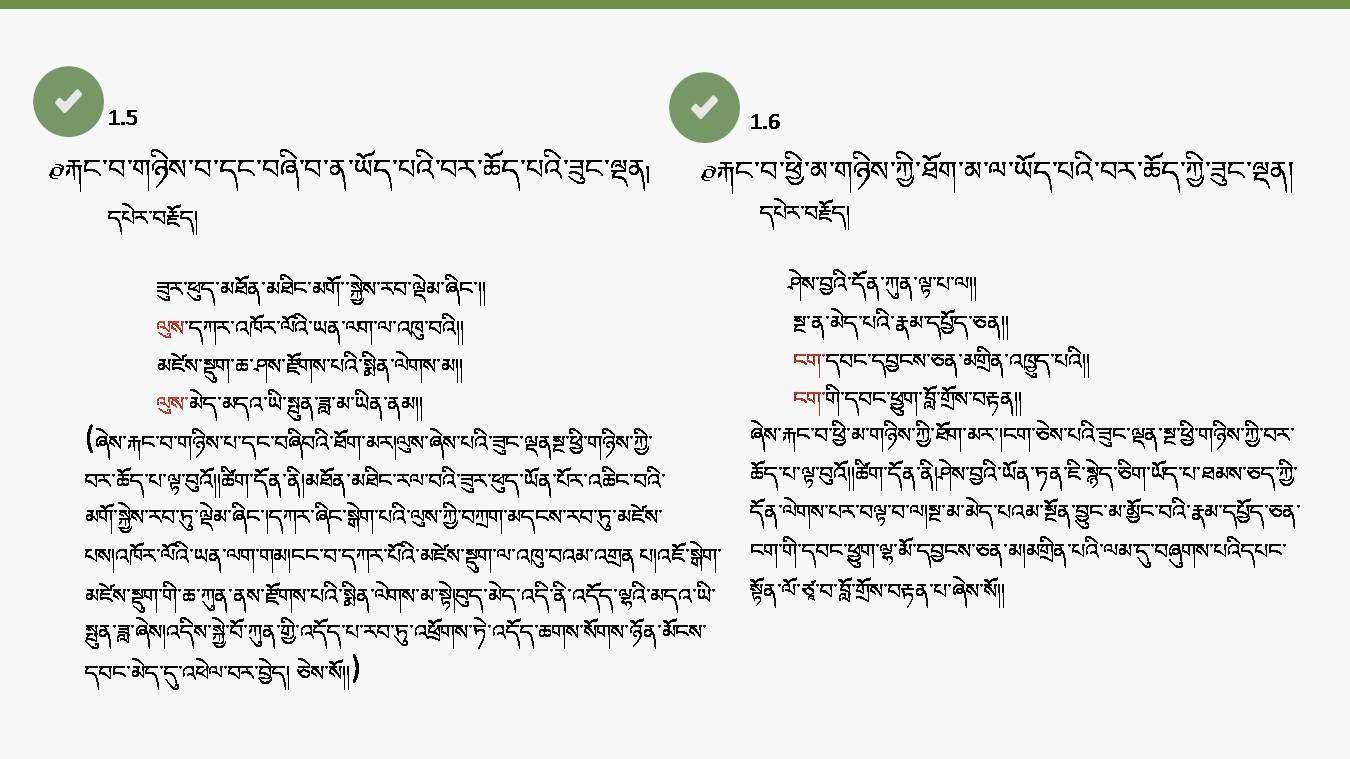 1.5
༧རྐང་བ་གཉིས་བ་དང་བཞི་བ་ན་ཡོད་པའི་བར་ཆོད་པའི་ཟུང་ལྡན།
དཔེར་བརྗོད།
ཟུར་ཕུད་མཐོན་མཐིང་མགོ་་སྐྱེས་རབ་ལྡེམ་ཞིང་།།
ལུས་དཀར་འཁོར་ལོའི་ཡན་ལག་ལ་འཁྲུ་བའི།།
མཛེས་སྡུག་ཆ་ཤས་རྫོགས་པའི་སྨིན་ལེགས་མ།།
ལུས་མེད་མདའ་ཡི་སྤུན་ཟླ་མ་ཡིན་ནམ།།
(ཞེས་རྐང་བ་གཉིས་པ་དང་བཞིབའི་ཐོག་མར།ལུས་ཞེས་པའི་ཟུང་ལྡནསྔ་ཕྱི་གཉིས་ཀྱི་
བར་ཆོད་པ་ལྟ་བུའོ།།ཚིག་དོན་ནི།མཐོན་མཐིང་རལ་བའི་ཟུར་ཕུད་ཡོན་པོར་འཆིང་བའི་
མགོ་སྐྱེས་རབ་ཏུ་ལྡེམ་ཞིང་།དཀར་ཞིང་སྒེག་པའི་ལུས་ཀྱི་བཀྲག་མདངས་རབ་ཏུ་མཛེས་
པས།འཁོར་ལོའི་ཡན་ལག་གམ།ངང་བ་དཀར་པོའི་མཛེས་སྡུག་ལ་འཁྲུ་བའམ་འགྲན་པ།འཇོ་སྒེག་
མཛེས་སྡུག་གི་ཆ་ཀུན་ནས་རྫོགས་པའི་སྨིན་ལེགས་མ་སྟེ།བུད་མེད་འདི་ནི་འདོད་ལྷའི་མདའ་ཡི་
སྤུན་ཟླ་ཞེས།འདིས་སྐྱེ་བོ་ཀུན་གྱི་འདོད་པ་རབ་ཏུ་འཕྲོགས་ཏེ་འདོད་ཆགས་སོགས་ཉོན་མོངས་
དབང་མེད་དུ་འཕེལ་བར་བྱེད། ཅེས་སོ།།)
1.6
༧རྐང་བ་ཕྱི་མ་གཉིས་ཀྱི་ཐོག་མ་ལ་ཡོད་པའི་བར་ཆོད་ཀྱི་ཟུང་ལྡན།
དཔེར་བརྗོད།
ཤེས་བྱའི་དོན་ཀུན་ལྟ་པ་ལ།།
སྔ་ན་མེད་པའི་རྣམ་དཔྱོད་ཅན།།
ངག་དབང་དབྱངས་ཅན་མགྲིན་འཁྱུད་པའི།།
ངག་གི་དབང་ཕྱུག་བློ་གྲོས་བརྟན།།
ཞེས་རྐང་བ་ཕྱི་མ་གཉིས་ཀྱི་ཐོག་མར་།ངག་ཅེས་པའི་ཟུང་ལྡན་སྔ་ཕྱི་གཉིས་ཀྱི་བར་
ཆོད་པ་ལྟ་བུའོ།།ཚིག་དོན་ནི།ཤེས་བྱའི་ཡོན་ཏན་ཇི་སྙེད་ཅིག་ཡོད་པ་ཐམས་ཅད་ཀྱི་
དོན་ལེགས་པར་བལྟ་བ་ལ།སྔ་མ་མེད་པའམ་སྔོན་བྱུང་མ་མྱོང་བའི་རྣམ་དཔྱོད་ཅན་
ངག་གི་དབང་ཕྱུག་ལྷ་མོ་དབྱངས་ཅན་མ།མགྲིན་པའི་ལམ་དུ་བཞུགས་པའིདཔང་
སྟོན་ལོ་ཙཱ་བ་བློ་གྲོས་བརྟན་པ་ཞེས་སོ།།